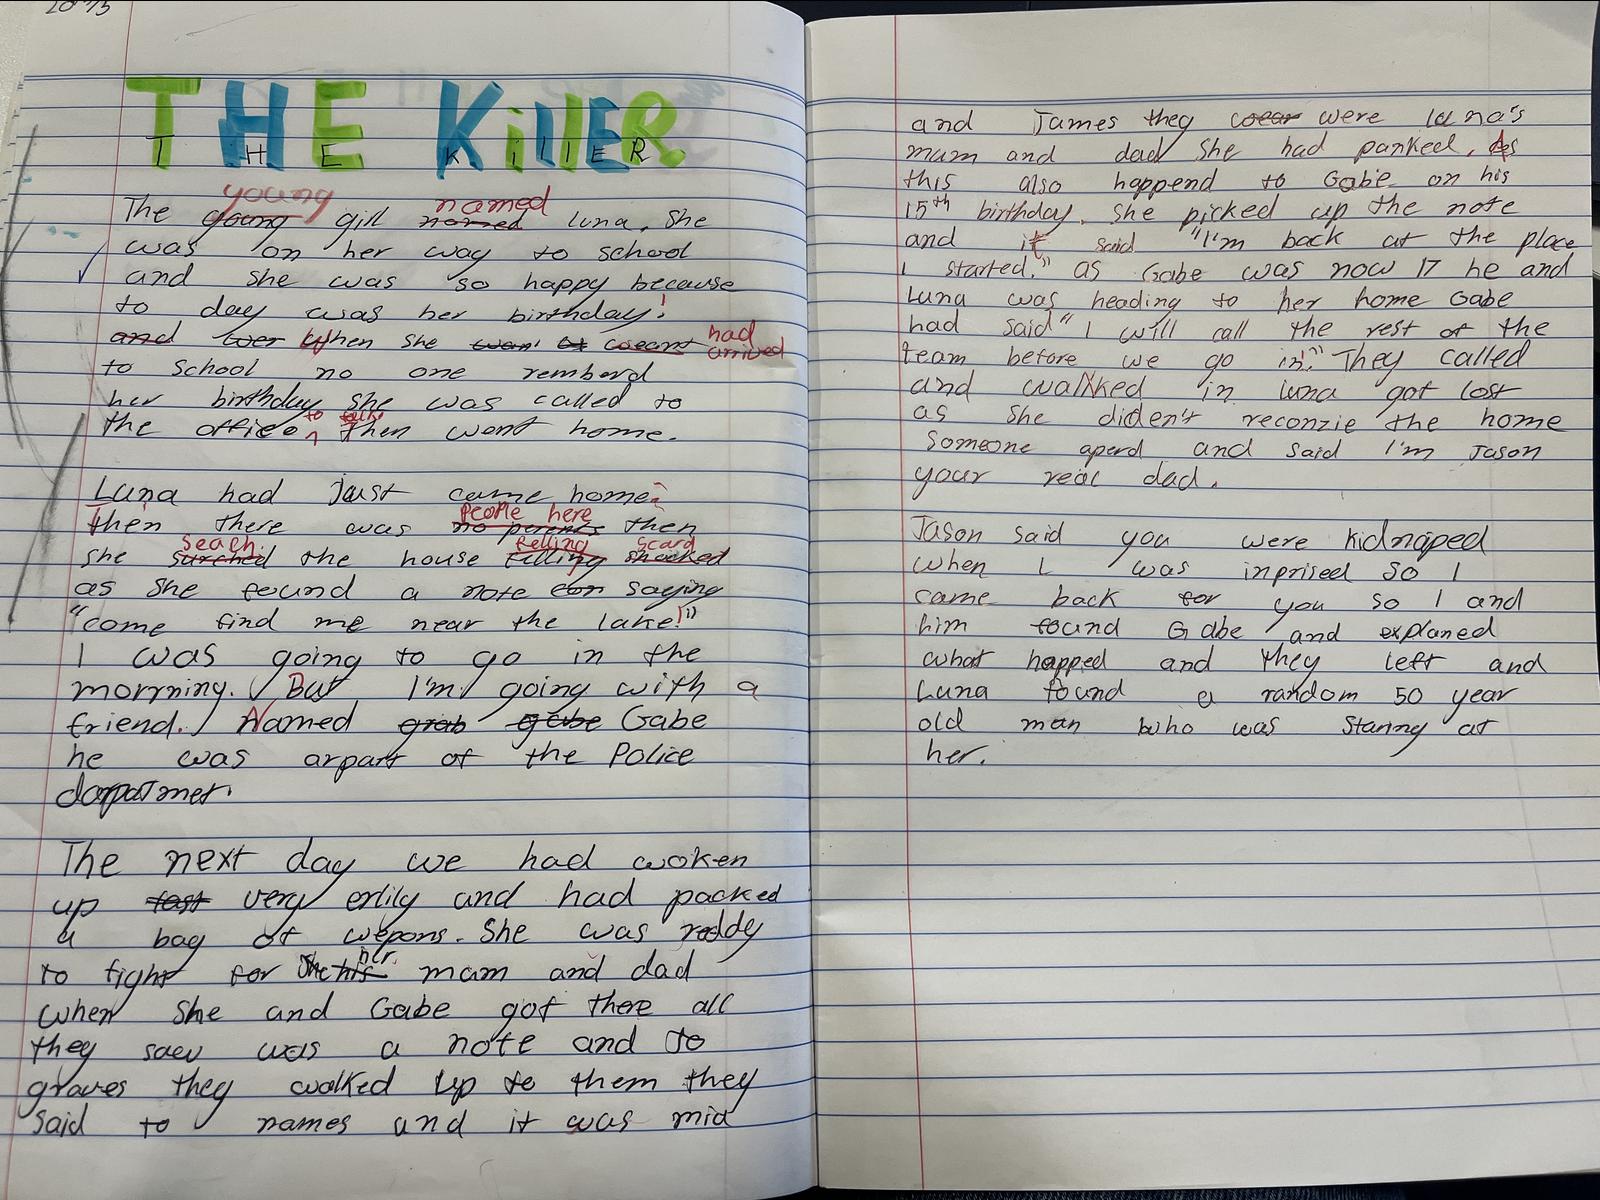 THE KillER
THE KillER
The young girl named luna. She
was on her way to school
and she was so happy because
to day was her birthday!
When she had arrived
to school no one remberd
her birthday she was called to
the office to talk then went home.
Luna had just came home.
then there was People here then
she seach the house felling scard
as she found a note saying
"come find me near the lake!"
I was going to go in the
morrning. But I'm going with a
friend. Named Gabe
he was arpart of the Police
The next day we had woken
up very erlily and had packed
a bag of wepons. She was reddy
to fight for her mam and dad
when she and Gabe got there all
they saw was a note and to
graves they walked up to them they
said to names and it was mia
and James they were luna's
mam and dad She had panked. As
this also happend to Gabe on his
15th birthday. She picked up the note
and it said "I'm back at the place
I started." as Gabe was now 17 he and
Luna was heading to her home Gabe
had said "I will call the rest of the
team before we go in!" They called
and walked in luna got lost
as she diden't reconzie the home
Someone aperd and said I'm Jason
your real dad.
Jason said you were kidnaped
when I was inprised so I
came back for you so I and
him found Gabe and explaned
what happed and they left and
Luna found a random 50 year
old man who was Staring at
her.